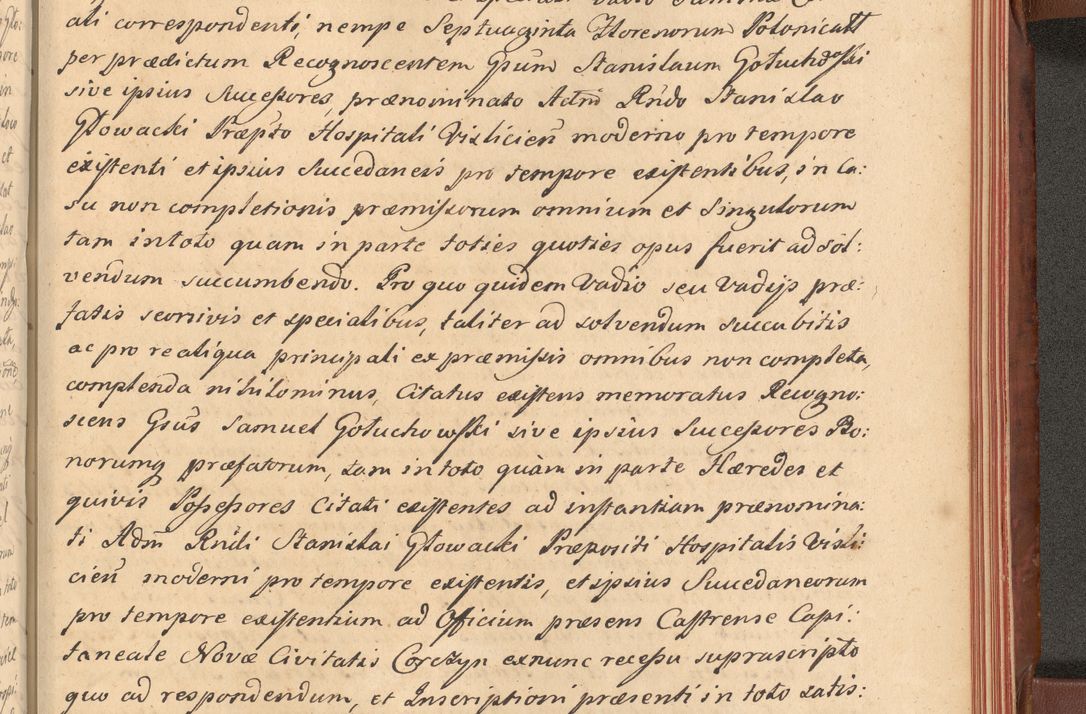 ali correspondenti, nempe Septuaginta Florenorum Polonicall
per prædictum Recognoscentem Gsum Stanislaum Gołuchowski
sive ipsius Successores prænominato Adm Rńdo Stanislao
Głowacki Præpto Hospitali Visliciens moderno pro tempore
existenti et ipsius Succedaneis pro tempore existentibus, in Ca:
su non completionis præmissorum omnium et Singulorum
tam in toto quam in parte toties quoties opus fuerit ad sol:
vendum succumbendo. Pro quo quidem Vadio seu Vadijs præ:
fatis seorsivis et specialibus, taliter ad solvendum succubitis
ac pro re aliqua principali ex præmissis omnibus non completa,
complenda nihilominus, Citatus existens memoratus Recogno:
scens Gsus Samuel Gołuchowski sive ipsius Successores Bo:
norumq præfatorum, tam in toto quàm in parte Hæredes et
quivis Possessores Citati existentes ad instantiam prænomina:
ti Adm Rńdi Stanislai Głowacki Præpositi Hospitalis Visli:
cien moderni pro tempore existentis, et ipsius Succedaneorum
pro tempore existentium ad Officium præsens Castrense Capi:
taneale Novæ Civitatis Corczyn exnunc recessu suprascripto
quo ad respondendum, et Inscriptioni præsenti in toto satis: